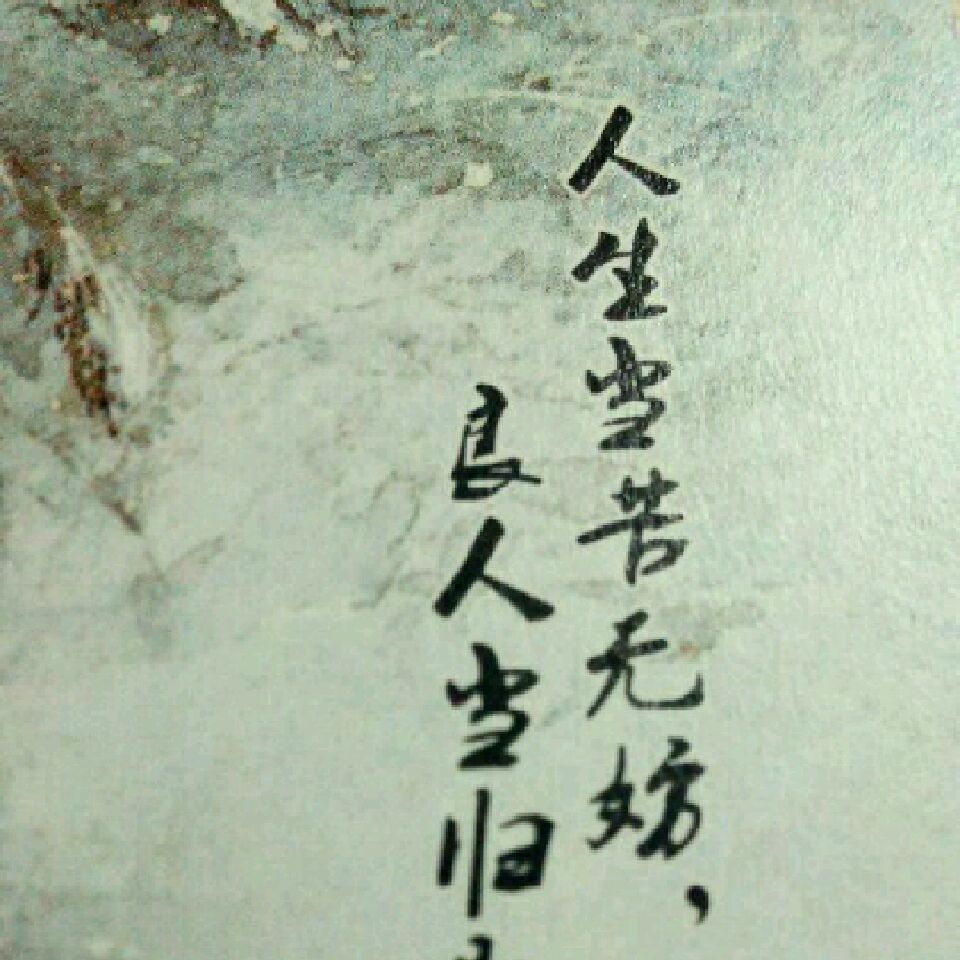 人生当苦无妨，
良人当归